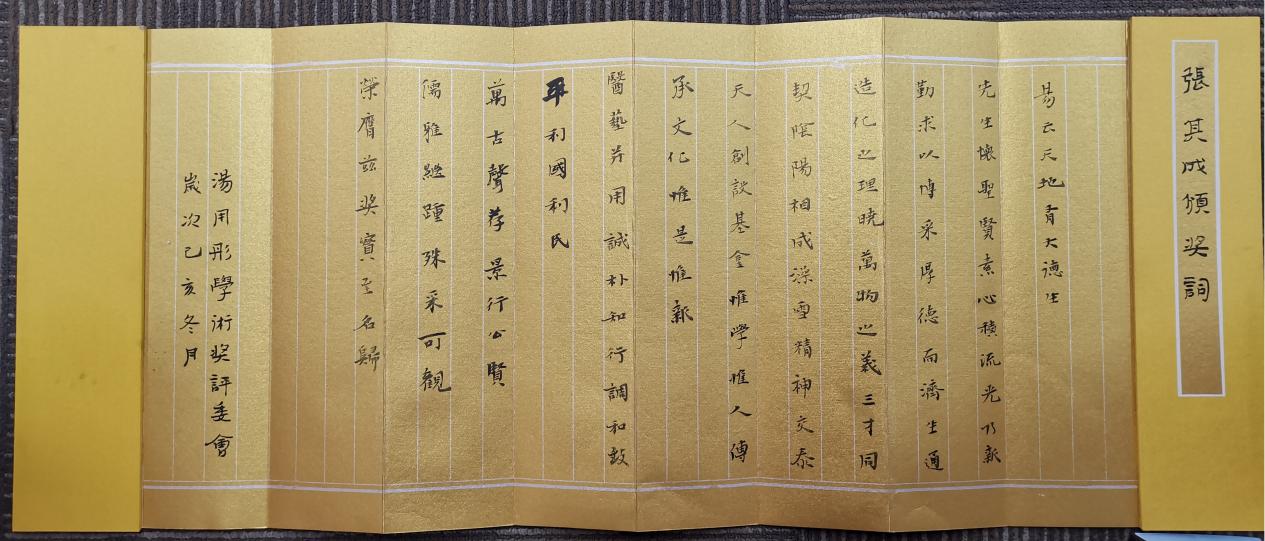 張其成頒奖詞
易云天地有大德生
先生懷聖賢素心積流光乃新
勤求以博采厚德而濟生通
造化之理曉萬物之義三才同
契陰陽相成澡雪精神交泰
天人創設基金惟學惟人傳
承文化惟是惟新
醫藝并用誠朴知行調和致
平利國利民
萬古聲荐景行公賢
儒雅継踵殊采可觀
榮膺兹奖實至名歸
湯用彤學術奖評委會
歲次己亥冬月